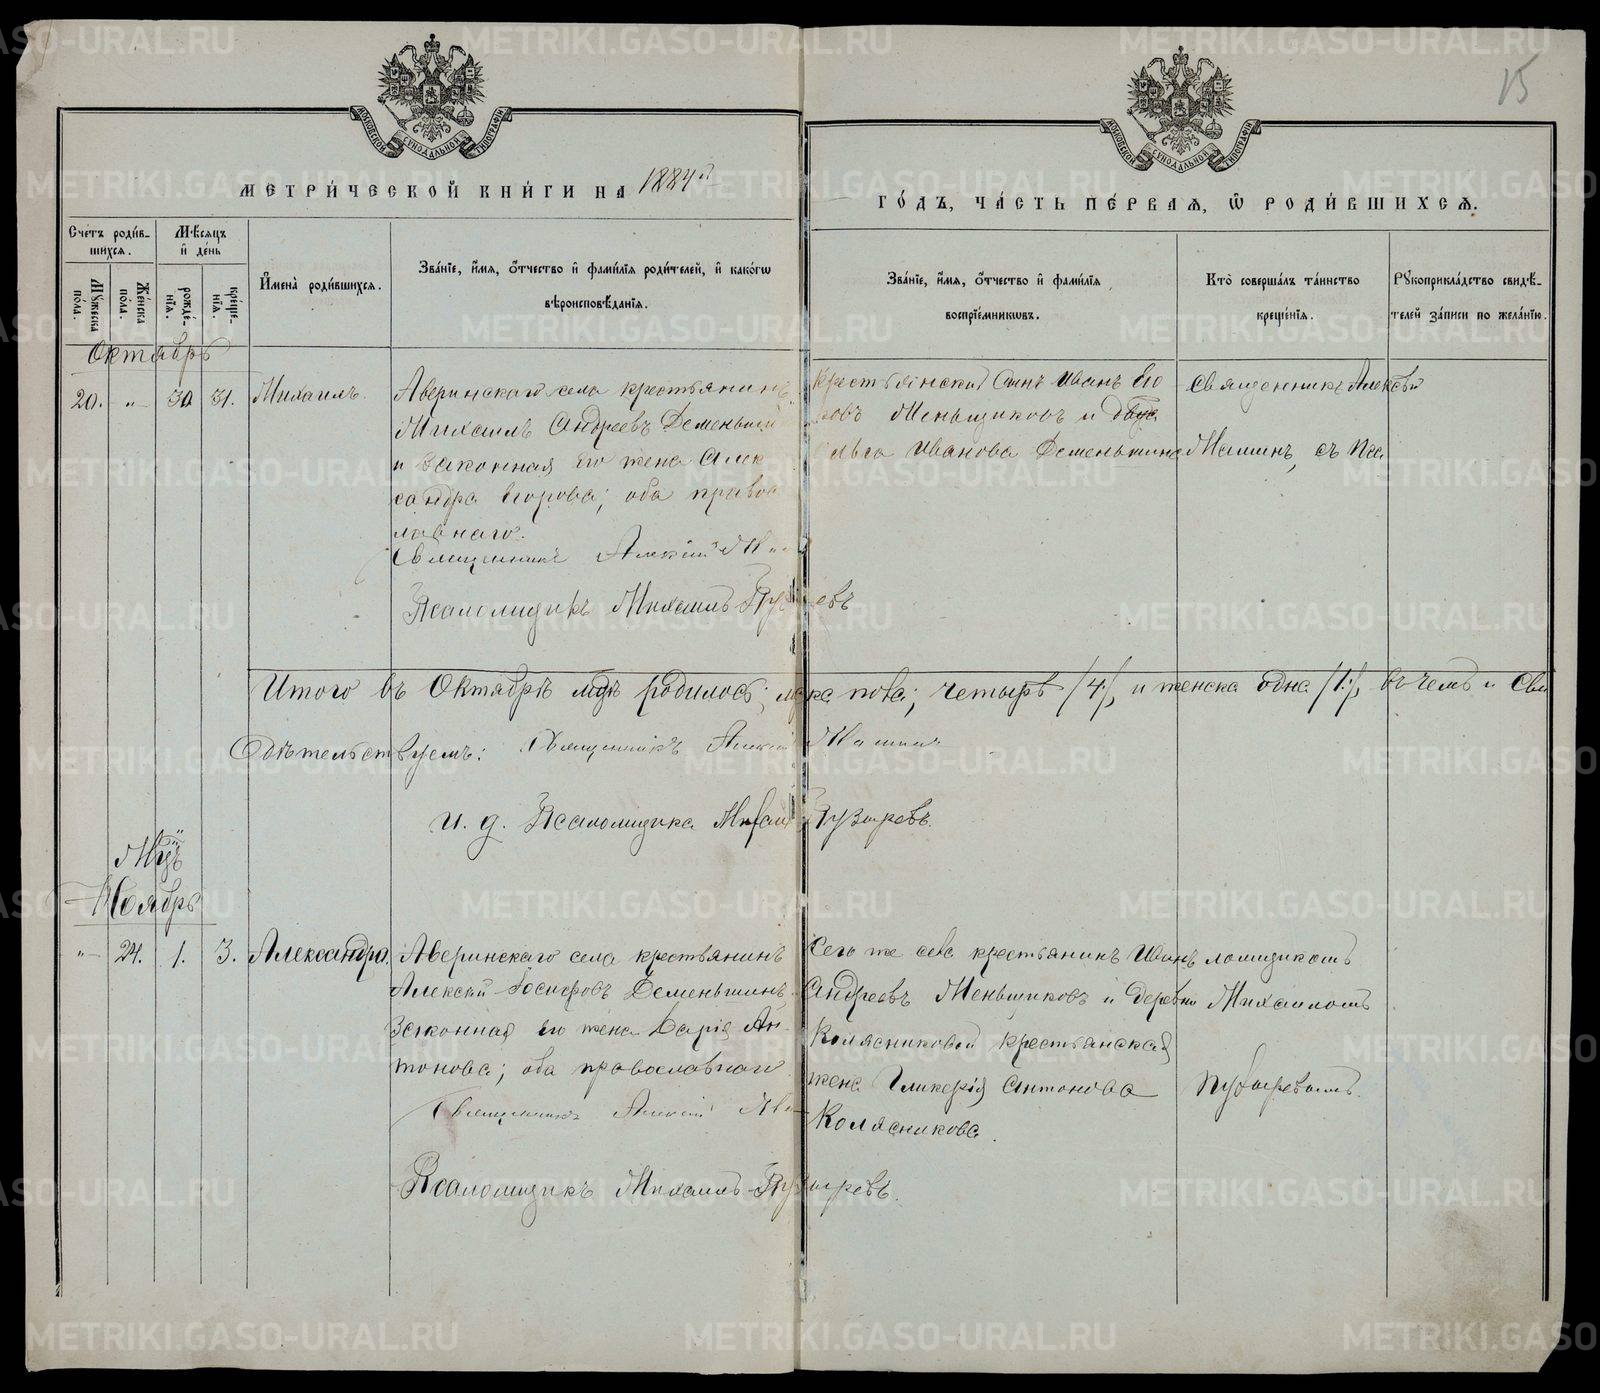 15
МОСКОВСКОЙ СѴНОДАЛЬНОЙ ТИПОГРАФІИ
МОСКОВСКОЙ СѴНОДАЛЬНОЙ ТИПОГРАФІИ
МЕТРИ́ЧЕСКОЙ КНИ́ГИ НА 1884й
ГО́ДЪ, ЧА́СТЬ ПЕ́РВАѦ, Ѡ РОДИ́ВШИХСѦ.
Сче́тъ роди́в-
шихсѧ.
Мѣ́сѧцъ
и҆ де́нь
Мꙋ́жеска
по́ла.
Же́нска
по́ла.
рожде́-
нїѧ.
креще́-
нїѧ.
И҆мена̀ роди́вшихсѧ.
Зва́нїе, и҆́мѧ, ѻ҆́тчество и҆ фами́лїѧ роди́телей, и҆ како́гѡ
вѣроисповѣ́данїѧ.
Зва́нїе, и҆́мѧ, ѻ҆́тчество и҆ фами́лїѧ
воспрїе́мникѡвъ.
Кто̀ соверша́лъ та́инство
креще́нїѧ.
Рꙋкоприкла́дство свидѣ́-
телей за́писи по жела́нїю.
Октябрь
20. " 30 31. Михаилъ.
Аверинскаго села крестьянинъ
Михаилъ Андреевъ Деменьшинъ
и законная его жена Алек
сандра Егорова; оба право
лавнаго.
Священникъ Алексій
Псаломщикъ Михаилъ Пузыревъ
Крестьянскій сынъ Иванъ Его
ровъ Меньщиковъ и
Ольга Иванова Деменьшина
Священникъ Алексѣй
Машинъ, съ Пса
Итого въ Октябрѣ мцѣ родилось; мужска пола; четыре /4/, и женска одна /1/, въ чемъ и Сви
дѣтельствуемъ: Священникъ Алексій Машинъ
и. д. Псаломщика Михаилъ Пузыревъ.
Мцъ
Ноябрь
" 24. 1. 3. Александра.
Аверинскаго села крестьянинъ
Алексѣй Іосифовъ Деменьшинъ,
Законная его жена Дарія Ан-
тонова; оба православнаго
Священникъ Алексій
Псаломщикъ Михаилъ Пузыревъ.
Сего же села крестьянинъ Иванъ
Андреевъ Меньщиковъ и деревни
Колясниковой крестьянская
жена Гликерія Антонова
Колясникова.
ломщикомъ
Михаиломъ
Пузыревымъ.
METRIKI.GASO-URAL.RU